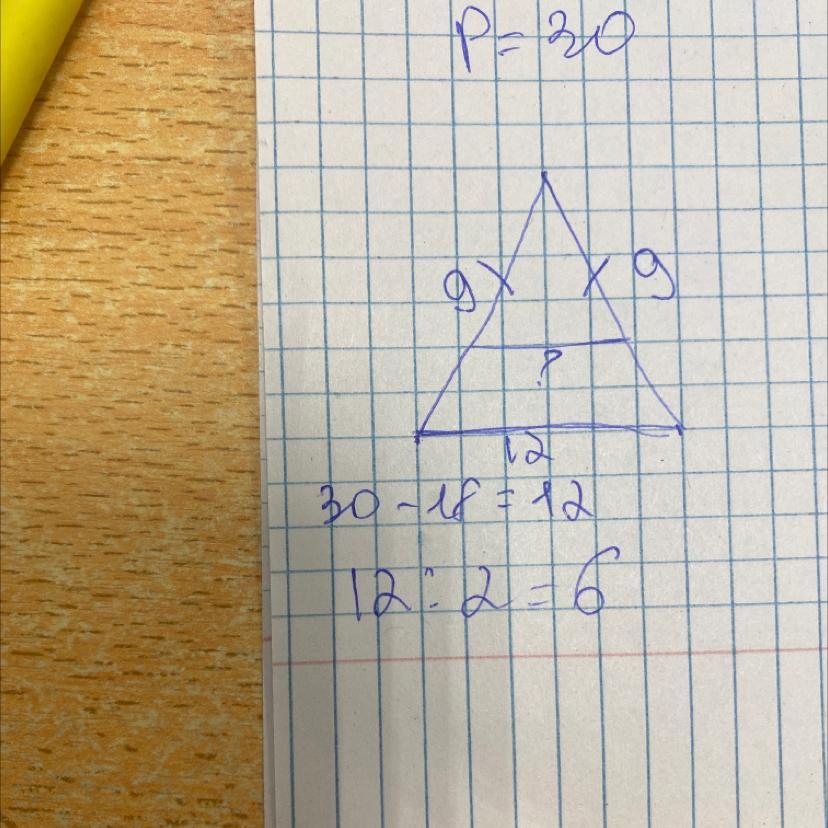 P = 30
9 9
?
12
30 - 18 = 12
12 : 2 = 6